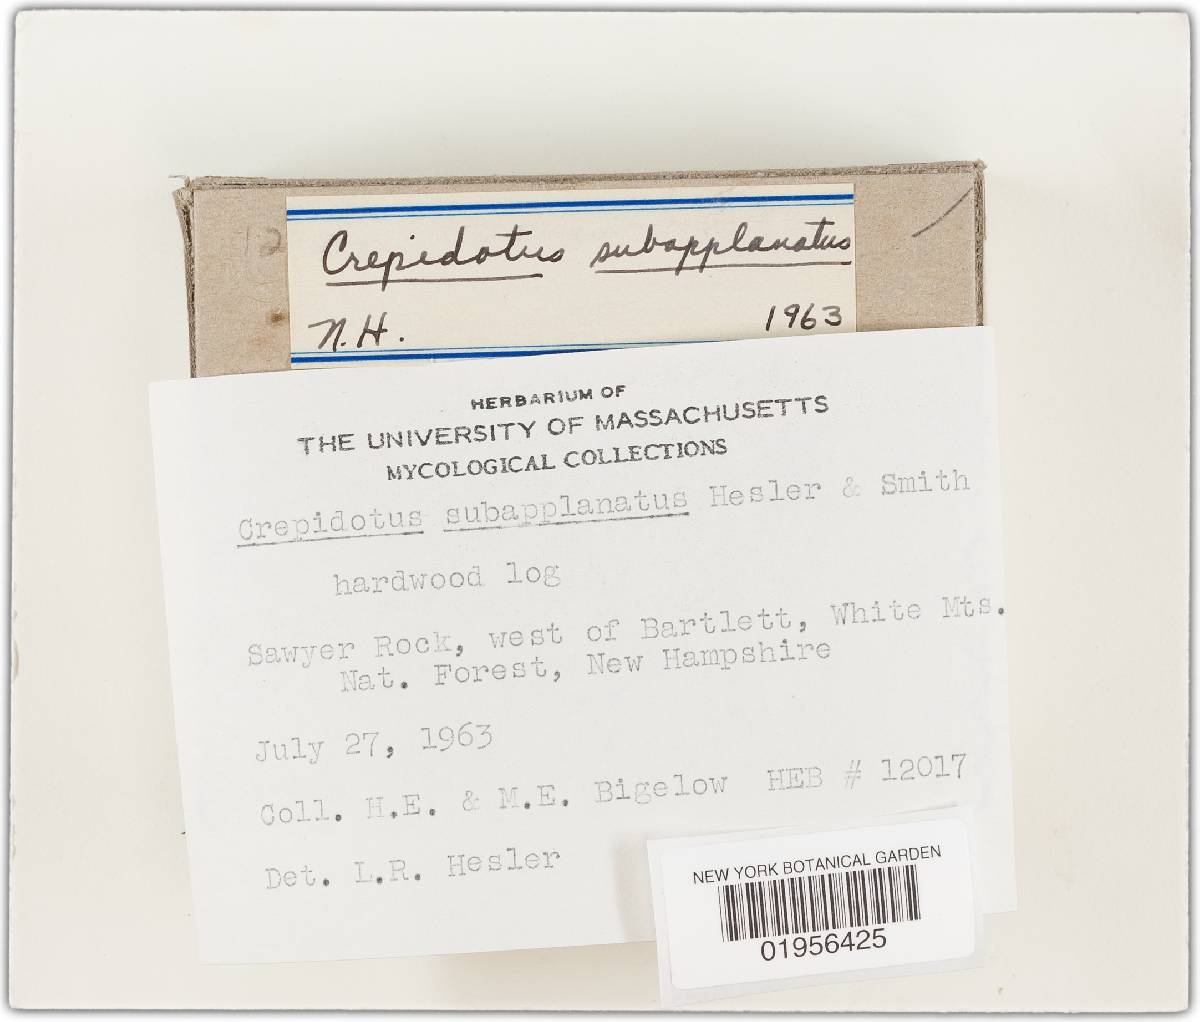 12
Crepidotus subapplanatus
N.H. 1963
HERBARIUM OF
THE UNIVERSITY OF MASSACHUSETTS
MYCOLOGICAL COLLECTIONS
Crepidotus subapplanatus Hesler & Smith
hardwood log
Sawyer Rock, west of Bartlett, White Mts.
Nat. Forest, New Hampshire
July 27, 1963
Coll. H.E. & M.E. Bigelow HEB # 12017
Det. L.R. Hesler
NEW YORK BOTANICAL GARDEN
01956425